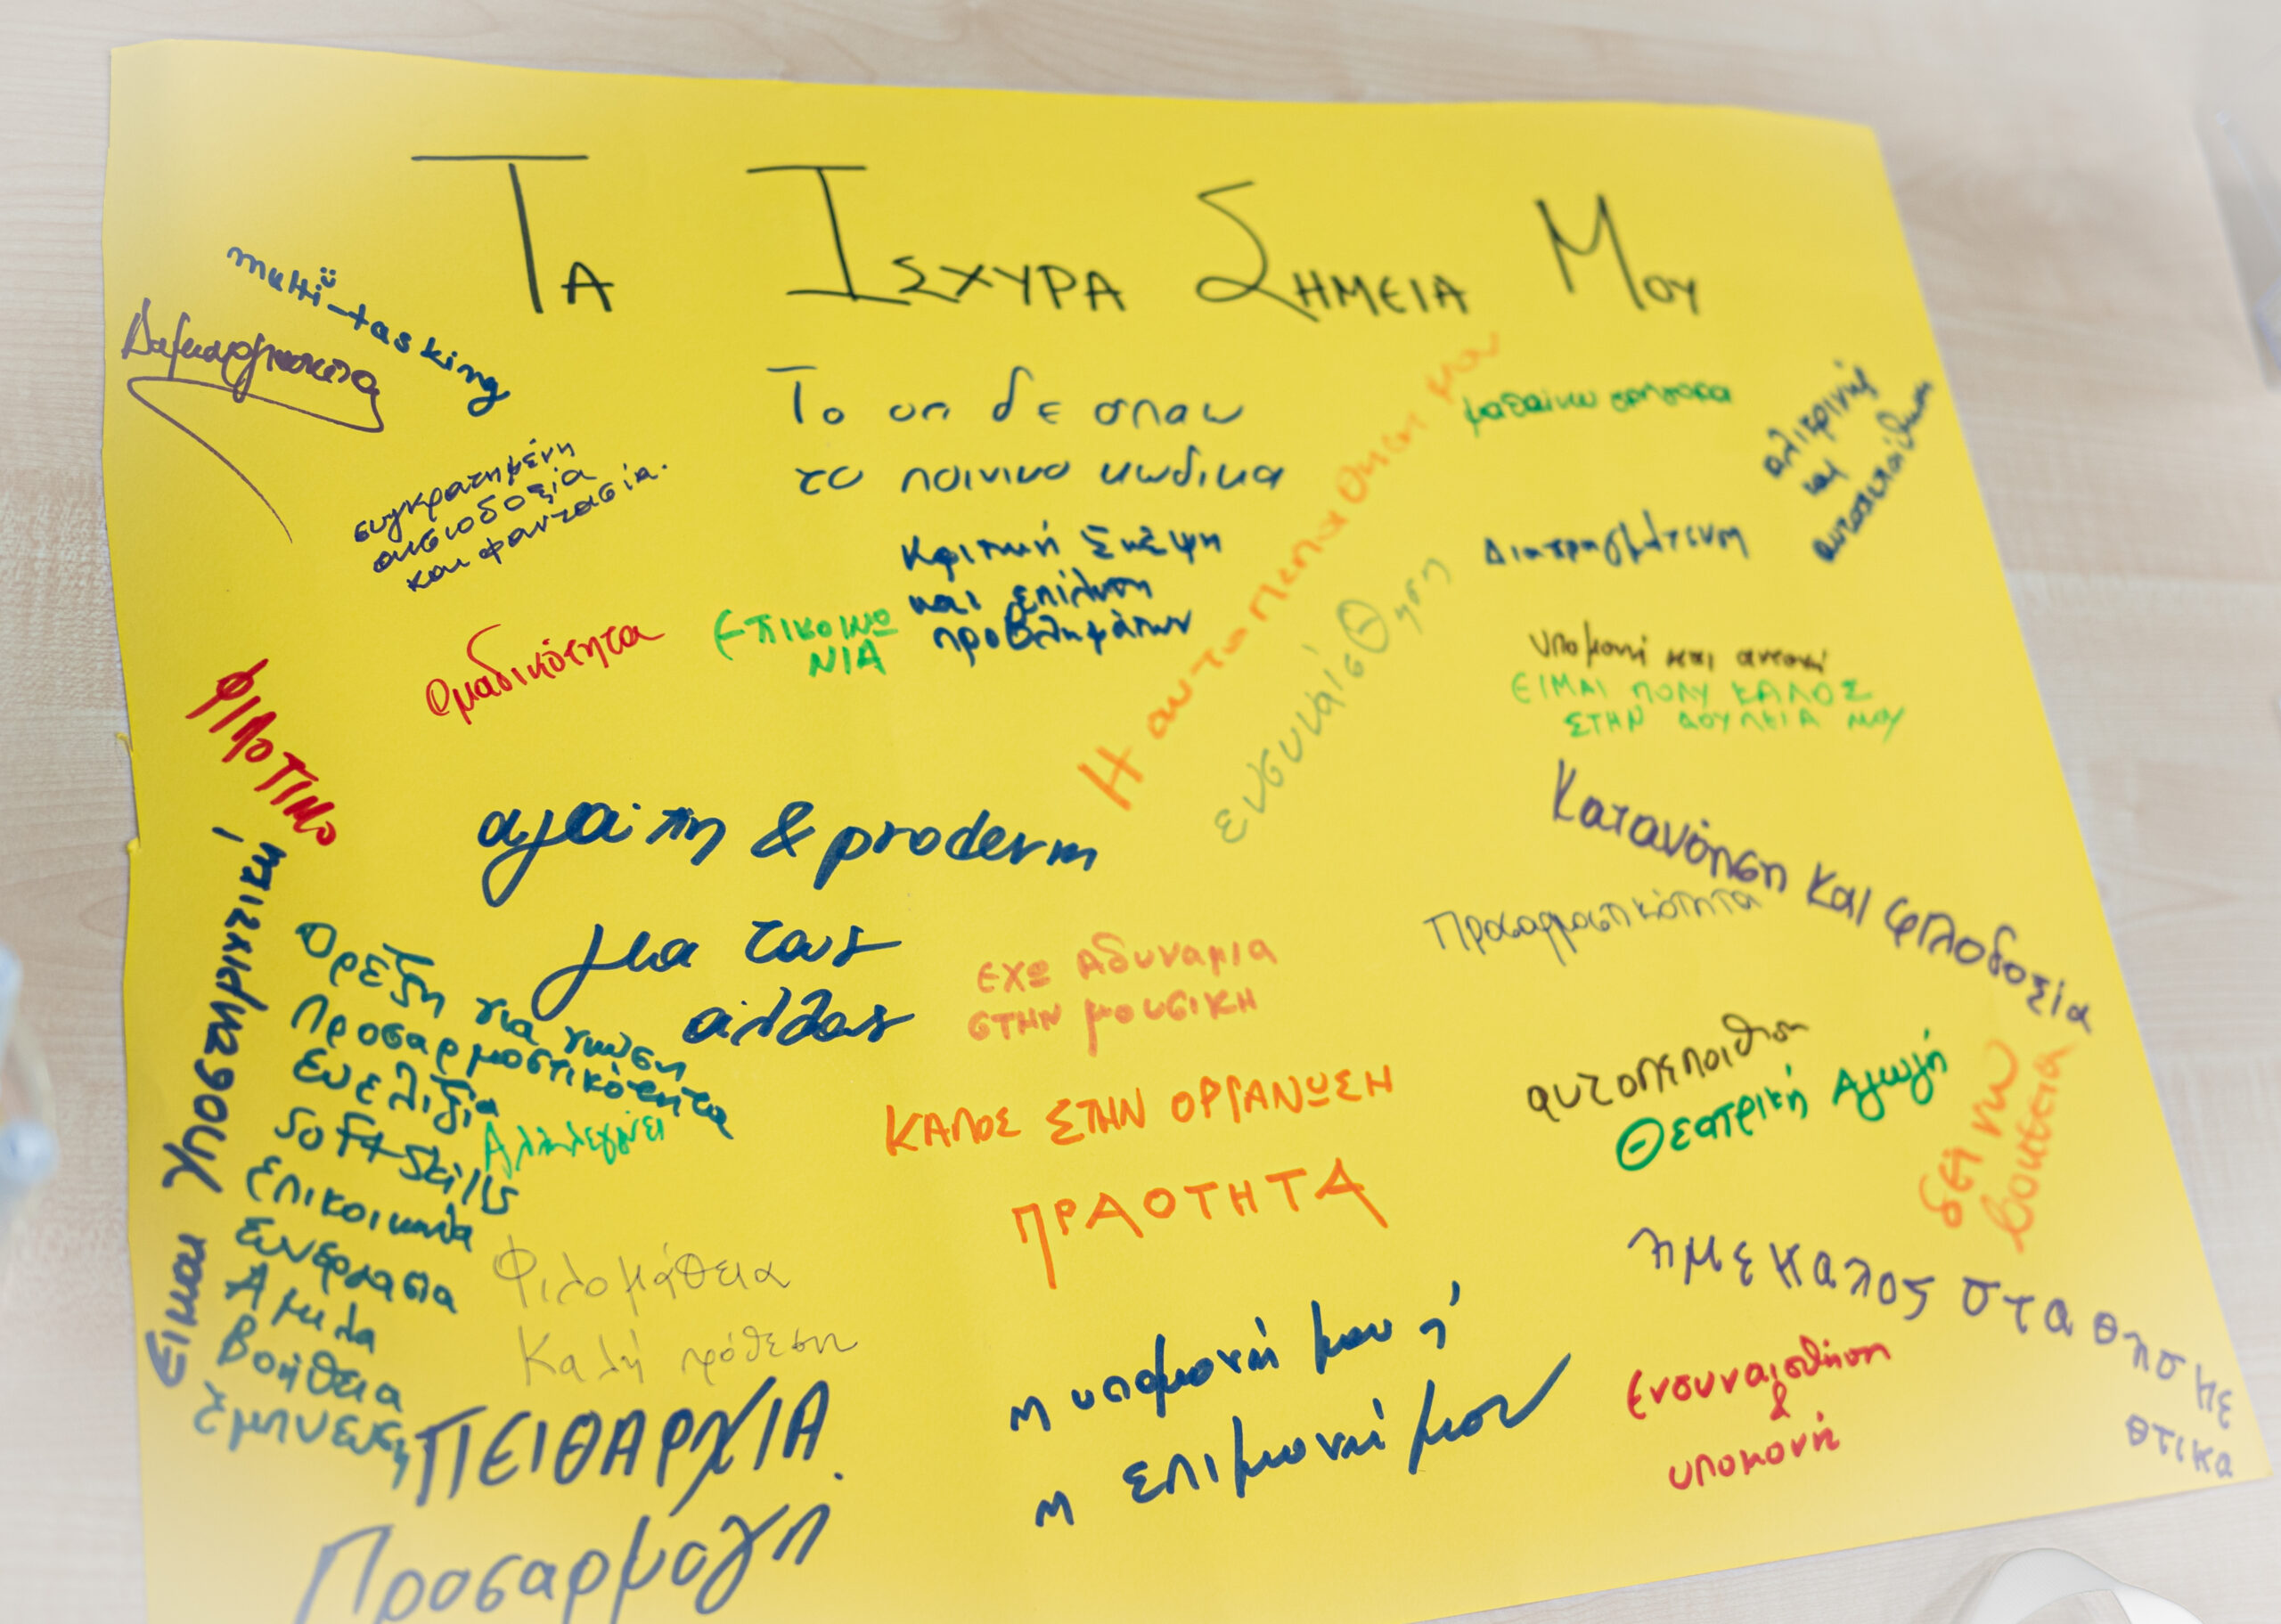 ΤΑ ΙΣΧΥΡΑ ΣΗΜΕΙΑ ΜΟΥ
multi-tasking
συγκρατημένη
αισιοδοξία
και φαντασία.
Το οτι δε σπαω
το ποινικο κωδικα
Η αυτοπεποιθηση μου
μαθαίνω γρήγορα
ειλικρινής
και
αυτοπεποίθηση
Κριτική Σκέψη
και επίλυση
προβλημάτων
Διαπραγμάτευση
ενσυναίσθηση
Ομαδικότητα
Επικοινω
ΝΙΑ
Υπομονή και αντοχή
ΕΙΜΑΙ ΠΟΛΥ ΚΑΛΟΣ
ΣΤΗΝ ΔΟΥΛΕΙΑ ΜΟΥ
ΦΙΛΟΤΙΜΟ
αγάπη & proderm
για τους
άλλους
Κατανόηση και φιλοδοξία
Προσαρμοστικότητα
Είμαι Υποστηρικτική
Όρεξη για γνώση
Προσαρμοστικότητα
Ευελιξία
Soft Skills
Επικοινωνία
Συνεργασία
Αμιλα
Βοήθεια
Εμπνευση
Αλληλεγγύη
εχω Αδυναμια
στην μουσικη
ΚΑΛΟΣ ΣΤΗΝ ΟΡΓΑΝΩΣΗ
ΠΡΑΟΤΗΤΑ
αυτοπεποιθηση
Θεατρική Αγωγή
Φιλομάθεια
Καλή πρόθεση
ημε καλος στα θησπηε
θτικα
ΠΕΙΘΑΡΧΙΑ.
Προσαρμογή
η υπομονή μου ή
η επιμονή μου
Ενσυναίσθηση
&
υπομονή